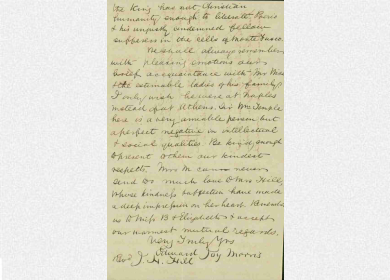 the King has not Christian
humanity enough to liberate Poerio
& his unjustly condemned fellow
sufferers in the cells of Monte Fusco.
We shall always remember
with pleasing emotions our
brief acquaintance with Mr
& the estimable ladies of his family.
I only wish he were at Naples
instead of at Athens. Sir Wm Temple
here is a very amiable person but
a perfect negative in intellectual
& social qualities. Be kind enough
to present to them our kindest
respects. Mrs M. never
send so much love to Mrs Hill
whose kindness & affection have made
a deep impression on her heart. Remember
us to Miss B & Elizabeth & accept
our warmest mutual regards.
Very Truly Yrs
Edward Joy Morris
Revd J. H. Hill